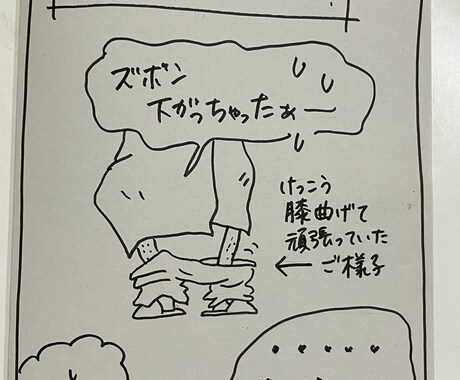 ズボン
下がっちゃったぁー
けっこう
膝曲げて
頑張っていた
← ご様子